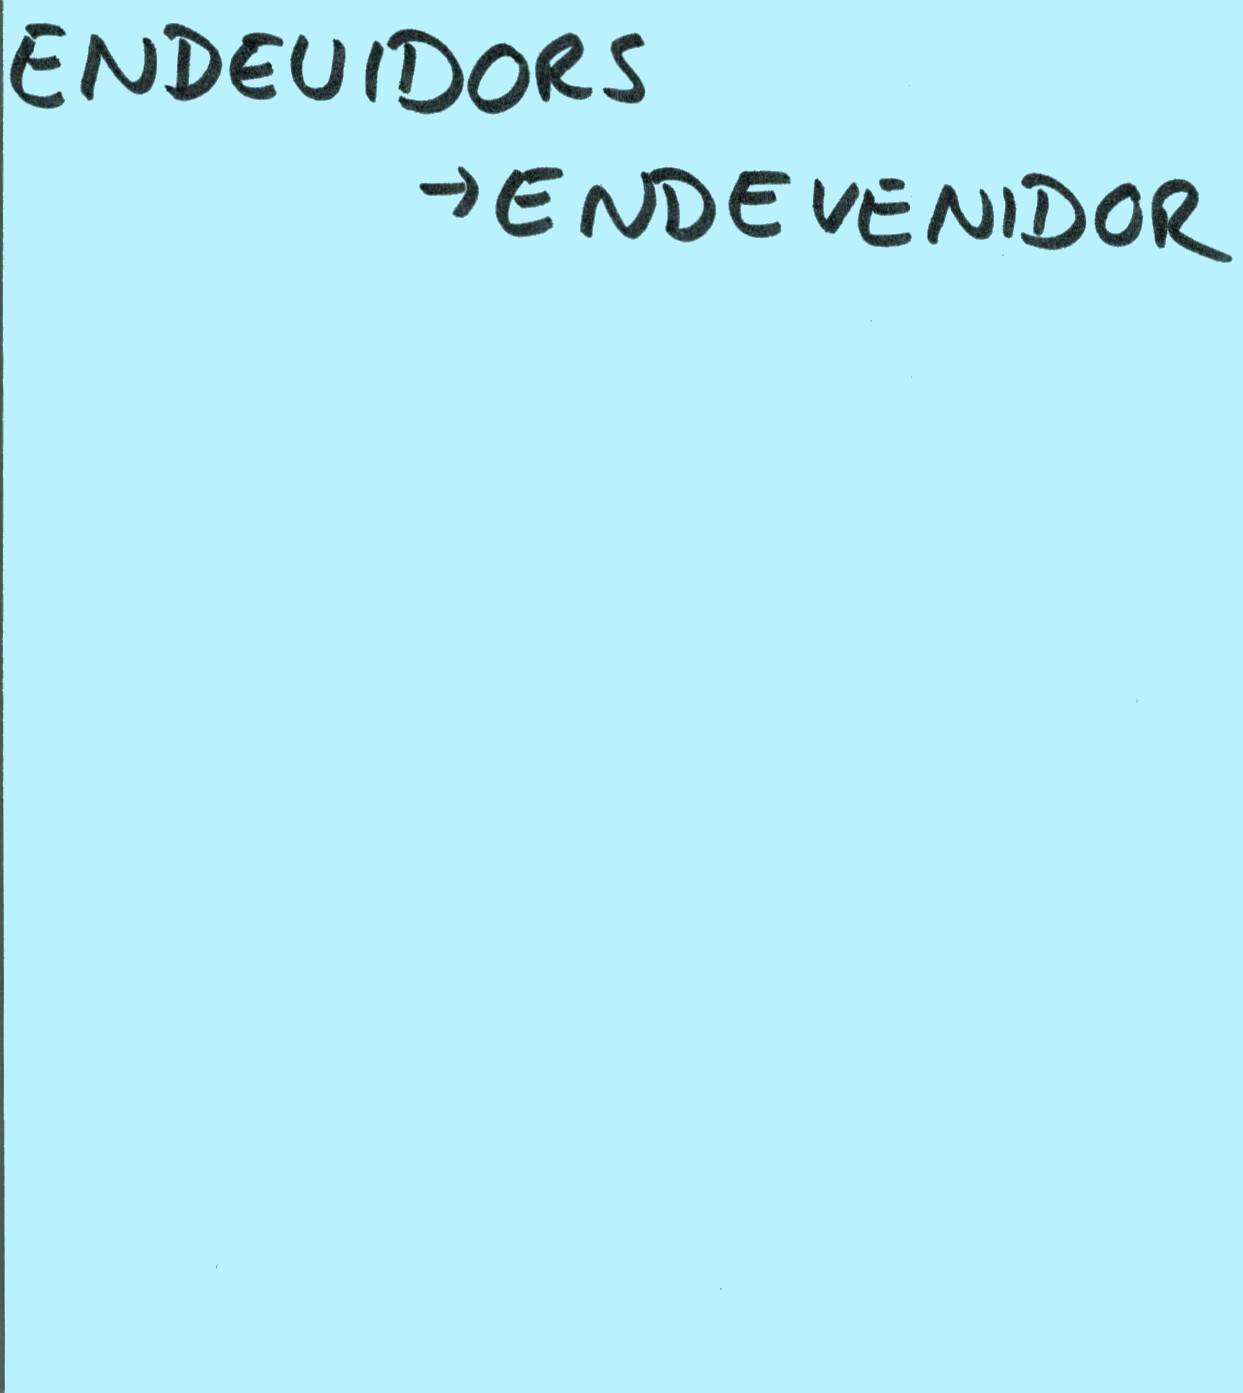 ENDEUIDORS
→ ENDEVENIDOR